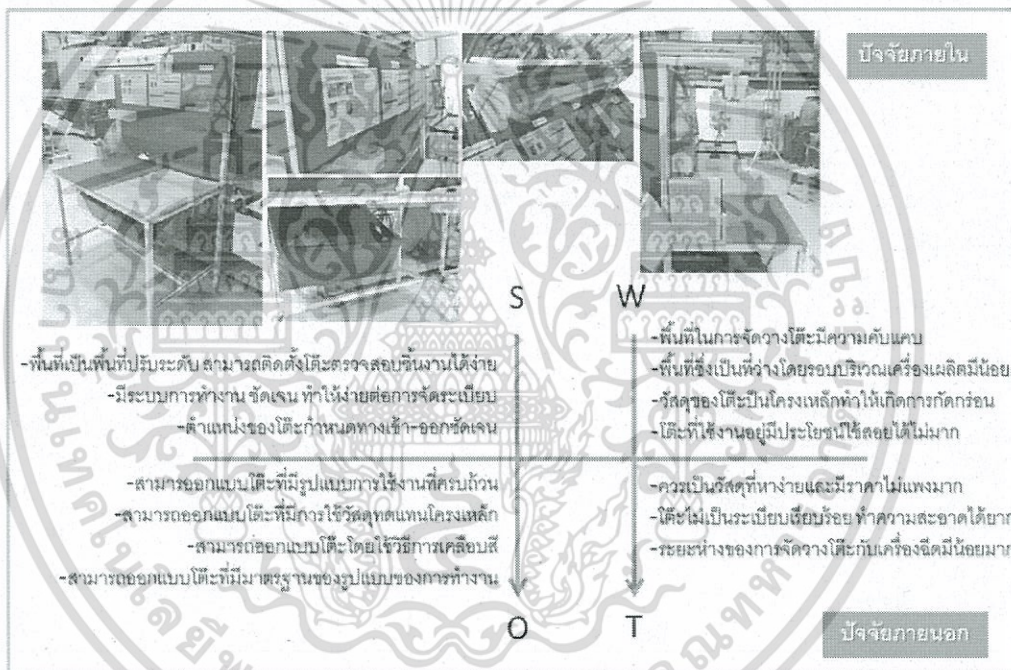 ปัจจัยภายใน
S
W
-พื้นที่เป็นพื้นที่ปรับระดับ สามารถติดตั้งโต๊ะตรวจสอบชิ้นงานได้ง่าย
-มีระบบการทำงาน ชัดเจน ทำให้ง่ายต่อการจัดระเบียบ
-ตำแหน่งของโต๊ะกำหนดทางเข้า-ออกชัดเจน
-พื้นที่ในการจัดวางโต๊ะมีความคับแคบ
-พื้นที่ซึ่งเป็นที่ว่างโดยรอบบริเวณเครื่องผลิตมีน้อย
-วัสดุของโต๊ะเป็นโครงเหล็กทำให้เกิดการกัดกร่อน
-โต๊ะที่ใช้งานอยู่มีประโยชน์ใช้สอยได้ไม่มาก
-สามารถออกแบบโต๊ะที่มีรูปแบบการใช้งานที่ครบถ้วน
-สามารถออกแบบโต๊ะที่มีการใช้วัสดุทดแทนโครงเหล็ก
-สามารถออกแบบโต๊ะโดยใช้วิธีการเคลือบสี
-สามารถออกแบบโต๊ะที่มีมาตรฐานของรูปแบบของการทำงาน
-ควรเป็นวัสดุที่หาง่ายและมีราคาไม่แพงมาก
-โต๊ะไม่เป็นระเบียบเรียบร้อย ทำความสะอาดได้ยาก
-ระยะห่างของการจัดวางโต๊ะกับเครื่องฉีดมีน้อยมาก
O
T
ปัจจัยภายนอก